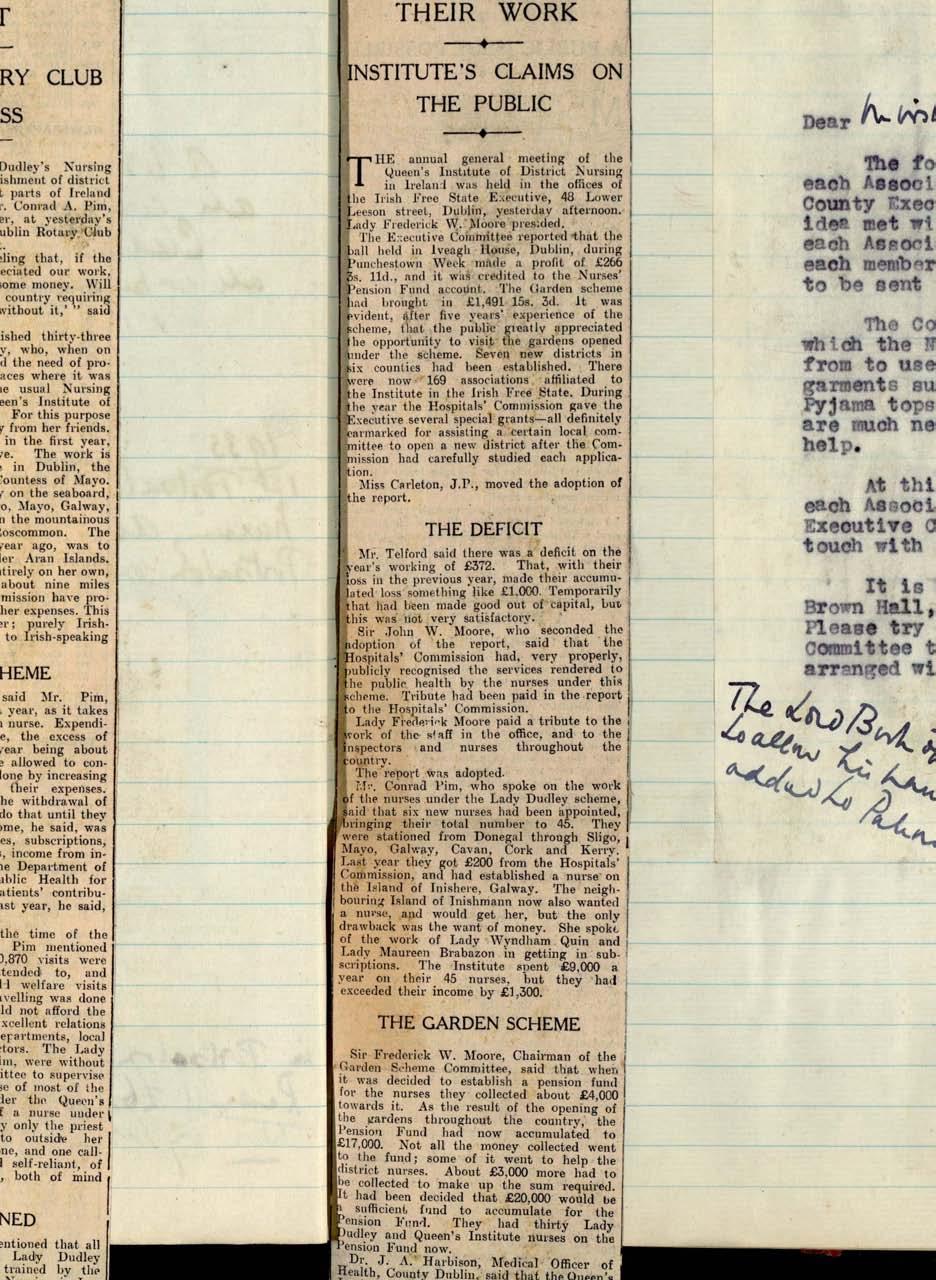 T
RY CLUB
SS
Dudley's Nursing
ishment of district
t parts of Ireland
r. Conrad A. Pim,
er, at yesterday's
ublin Rotary Club
t.
eling that, if the
eciated our work,
some money. Will
country requiring
without it,' " said
ished thirty-three
y, who, when on
d the need of pro-
aces where it was
he usual Nursing
een's Institute of
For this purpose
y from her friends.
in the first year,
ve. The work is
e in Dublin, the
Countess of Mayo.
y on the seaboard,
o, Mayo, Galway,
n the mountainous
Roscommon. The
year ago, was to
ler Aran Islands.
tirely on her own,
about nine miles
mission have pro-
her expenses. This
er; purely Irish-
to Irish-speaking
HEME
said Mr. Pim,
year, as it takes
n nurse. Expendi-
e, the excess of
year being about
e allowed to con-
done by increasing
their expenses.
he withdrawal of
do that until they
ome, he said, was
es, subscriptions,
s, income from in-
he Department of
ublic Health for
atients' contribu-
ast year, he said,
the time of the
Pim mentioned
0,870 visits were
tended to, and
welfare visits
avelling was done
ld not afford the
xcellent relations
epartments, local
ctors. The Lady
im, were without
ittee to supervise
se of most of the
der the Queen's
f a nurse under
y only the priest
to outside her
ne, and one call-
self-reliant, of
, both of mind
NED
entioned that all
Lady Dudley
trained by the
THEIR WORK
INSTITUTE'S CLAIMS ON
THE PUBLIC
THE annual general meeting of the
Queen's Institute of District Nursing
in Ireland was held in the offices of
the Irish Free State Executive, 48 Lower
Leeson street, Dublin, yesterday afternoon.
Lady Frederick W. Moore presided.
The Executive Committee reported that the
ball held in Iveagh House, Dublin, during
Punchestown Week made a profit of £266
3s. 11d., and it was credited to the Nurses'
Pension Fund account. The Garden scheme
had brought in £1,491 15s. 3d. It was
evident, after five years' experience of the
scheme, that the public greatly appreciated
the opportunity to visit the gardens opened
under the scheme. Seven new districts in
six counties had been established. There
were now 169 associations affiliated to
the Institute in the Irish Free State. During
the year the Hospitals' Commission gave the
Executive several special grants—all definitely
earmarked for assisting a certain local com-
mittee to open a new district after the Com-
mission had carefully studied each applica-
tion.
Miss Carleton, J.P., moved the adoption of
the report.
THE DEFICIT
Mr. Telford said there was a deficit on the
year's working of £372. That, with their
loss in the previous year, made their accumu-
lated loss something like £1,000. Temporarily
that had been made good out of capital, but
this was not very satisfactory.
Sir John W. Moore, who seconded the
adoption of the report, said that the
Hospitals' Commission had, very properly,
publicly recognised the services rendered to
the public health by the nurses under this
scheme. Tribute had been paid in the report
to the Hospitals' Commission.
Lady Frederick Moore paid a tribute to the
work of the staff in the office, and to the
inspectors and nurses throughout the
country.
The report was adopted.
Mr. Conrad Pim, who spoke on the work
of the nurses under the Lady Dudley scheme,
said that six new nurses had been appointed,
bringing their total number to 45. They
were stationed from Donegal through Sligo,
Mayo, Galway, Cavan, Cork and Kerry.
Last year they got £200 from the Hospitals'
Commission, and had established a nurse on
the Island of Inishere, Galway. The neigh-
bouring Island of Inishmann now also wanted
a nurse, and would get her, but the only
drawback was the want of money. She spoke
of the work of Lady Wyndham Quin and
Lady Maureen Brabazon in getting in sub-
scriptions. The Institute spent £9,000 a
year on their 45 nurses, but they had
exceeded their income by £1,300.
THE GARDEN SCHEME
Sir Frederick W. Moore, Chairman of the
Garden Scheme Committee, said that when
it was decided to establish a pension fund
for the nurses they collected about £4,000
towards it. As the result of the opening of
the gardens throughout the country, the
Pension Fund had now accumulated to
£17,000. Not all the money collected went
to the fund; some of it went to help the
district nurses. About £3,000 more had to
be collected to make up the sum required.
It had been decided that £20,000 would be
a sufficient fund to accumulate for the
Pension Fund. They had thirty Lady
Dudley and Queen's Institute nurses on the
Pension Fund now.
Dr. J. A. Harbison, Medical Officer of
Health, County Dublin, said that the Queen's
Dear
The fo
each Associ
County Exec
idea met wi
each Associ
each member
to be sent
The Co
which the N
from to use
garments su
Pyjama tops
are much ne
help.
At thi
each Associ
Executive C
touch with
It is
Brown Hall,
Please try
Committee t
arranged wi
The Lord
to allow his
added to